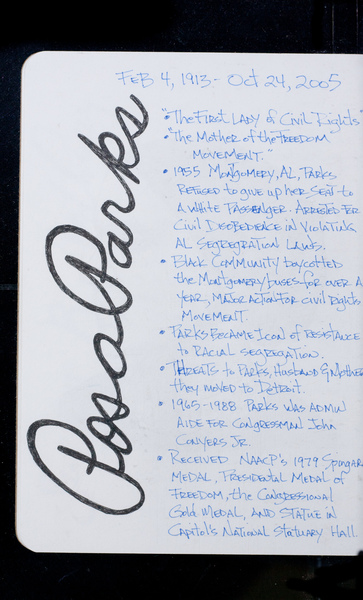 Rosa Parks
Feb 4, 1913 - Oct 24, 2005
• "The First Lady of Civil Rights"
• "The Mother of the Freedom
Movement."
• 1955 Montgomery, AL, Parks
Refused to give up her seat to
a white passenger. Arrested for
Civil Disobedience in violating
AL Segregation Laws.
• Black Community boycotted
the Montgomery buses for over a
year, major action for civil rights
movement.
• Parks became icon of resistance
to racial segregation.
• Threats to Parks, Husband & Mother
they moved to Detroit.
• 1965-1988 Parks was admin
aide for Congressman John
Conyers Jr.
• Received NAACP's 1979 Spingar
Medal, Presidental Medal of
Freedom, the Congressional
Gold Medal, and statue in
Capitol's National Statuary Hall.